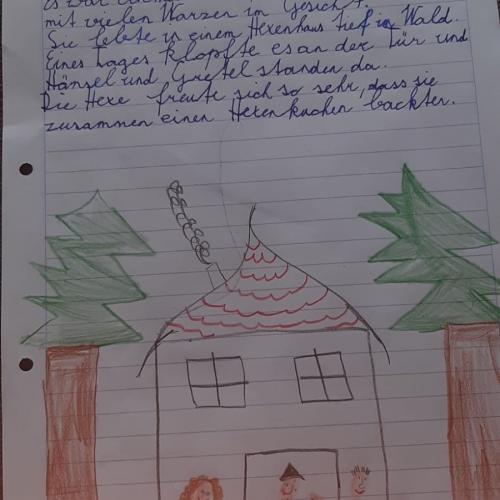 es war
mit vielen Warzen im Gesicht.
Sie lebte in einem Hexenhaus tief im Wald.
Eines Tages klopfte es an der Tür und
Hänsel und Gretel standen da.
Die Hexe freute sich so sehr, dass sie
zusammen einen Hexenkuchen backten.